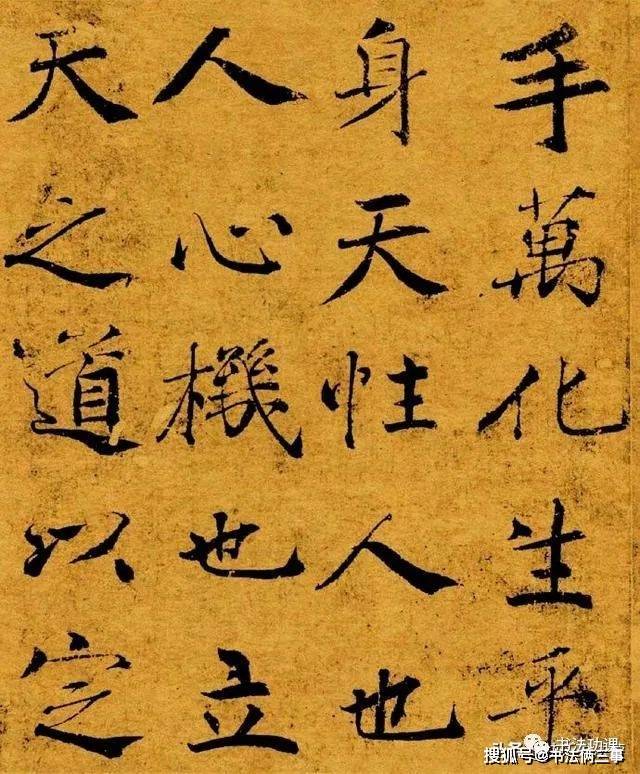 手萬化生乎
身天性人也
人心機也立
天之道以定
书法功课
搜狐号@书法俩三事